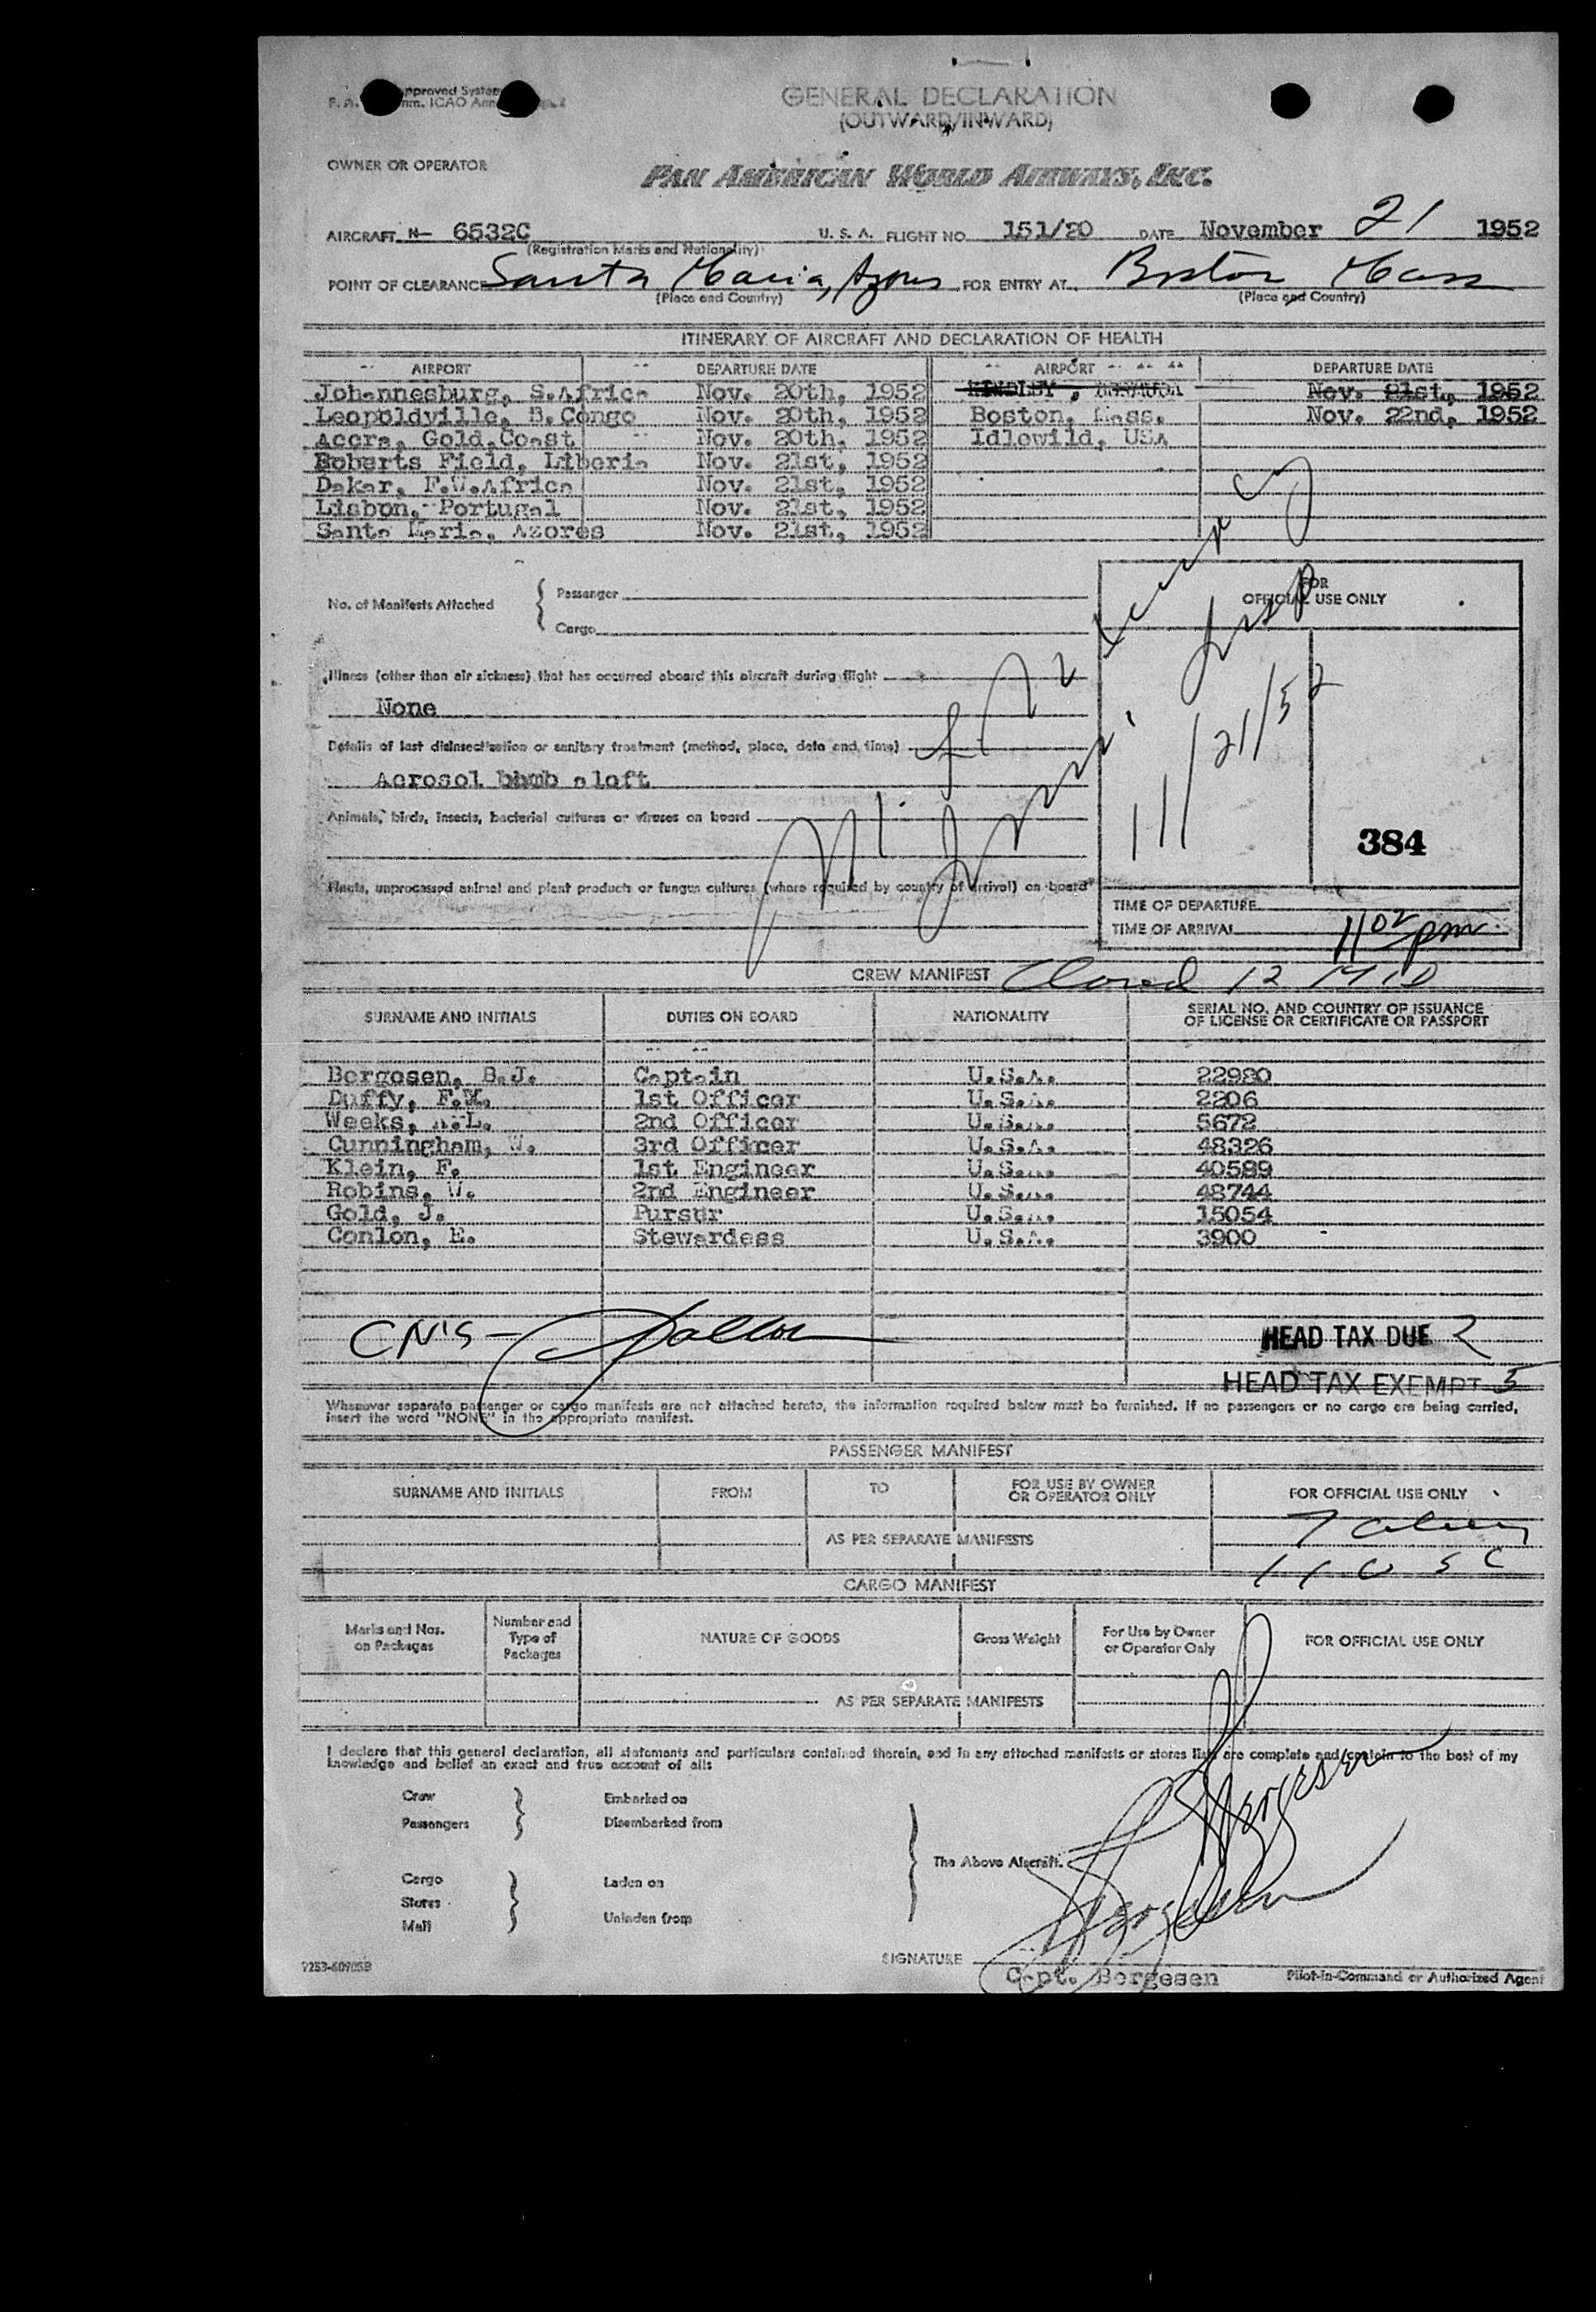 GENERAL DECLARATION
(OUTWARD/INWARD)
OWNER OR OPERATOR
PAN AMERICAN WORLD AIRWAYS, INC.
AIRCRAFT N- 6532C U. S. A. FLIGHT NO. 151/20 DATE November 21 1952
(Registration Marks and Nationality)
POINT OF CLEARANCE Santa Maria, Azores FOR ENTRY AT Boston Mass
(Place and Country) (Place and Country)
ITINERARY OF AIRCRAFT AND DECLARATION OF HEALTH
AIRPORT DEPARTURE DATE AIRPORT DEPARTURE DATE
Johannesburg, S.Africa Nov. 20th, 1952 KINDLEY, BERMUDA Nov. 21st, 1952
Leopoldville, B.Congo Nov. 20th, 1952 Boston, Mass. Nov. 22nd, 1952
Accra, Gold Coast Nov. 20th, 1952 Idlewild, USA
Roberts Field, Liberia Nov. 21st, 1952
Dakar, F.W.Africa Nov. 21st, 1952
Lisbon, Portugal Nov. 21st, 1952
Santa Maria, Azores Nov. 21st, 1952
FOR
OFFICIAL USE ONLY
No. of Manifests Attached
Passenger
Cargo
Illness (other than air sickness) that has occurred aboard this aircraft during flight
None
Details of last disinsectization or sanitary treatment (method, place, date and time)
Aerosol bbmb aloft
Animals, birds, insects, bacterial cultures or viruses on board
11/21/52
384
Plants, unprocessed animal and plant products or fungus cultures (where required by country of arrival) on board
TIME OF DEPARTURE
TIME OF ARRIVAL 1102 pm
CREW MANIFEST Closed 12 MID
SURNAME AND INITIALS DUTIES ON BOARD NATIONALITY SERIAL NO. AND COUNTRY OF ISSUANCE OF LICENSE OR CERTIFICATE OR PASSPORT
Borgesen, B.J. Captain U.S.A. 22980
Duffy, F.M. 1st Officer U.S.A. 2206
Weeks, A.L. 2nd Officer U.S.A. 5672
Cunningham, W. 3rd Officer U.S.A. 48326
Klein, F. 1st Engineer U.S.A. 40589
Robins, W. 2nd Engineer U.S.A. 48744
Gold, J. Pursur U.S.A. 15054
Conlon, E. Stewardess U.S.A. 3900
CN'S -
HEAD TAX DUE 2
HEAD TAX EXEMPT 5
Whenever separate passenger or cargo manifests are not attached hereto, the information required below must be furnished. If no passengers or no cargo are being carried,
insert the word "NONE" in the appropriate manifest.
PASSENGER MANIFEST
SURNAME AND INITIALS FROM TO FOR USE BY OWNER OR OPERATOR ONLY FOR OFFICIAL USE ONLY
7 alien
AS PER SEPARATE MANIFESTS
11 USC
CARGO MANIFEST
Marks and Nos. on Packages Number and Type of Packages NATURE OF GOODS Gross Weight For Use by Owner or Operator Only FOR OFFICIAL USE ONLY
AS PER SEPARATE MANIFESTS
I declare that this general declaration, all statements and particulars contained therein, and in any attached manifests or stores lists are complete and contain to the best of my
knowledge and belief an exact and true account of all:
Crew Embarked on
Passengers Disembarked from
The Above Aircraft.
Cargo Laden on
Stores
Mail Unladen from
Borgesen
Borgesen
SIGNATURE
Capt. Borgesen Pilot-in-Command or Authorized Agent